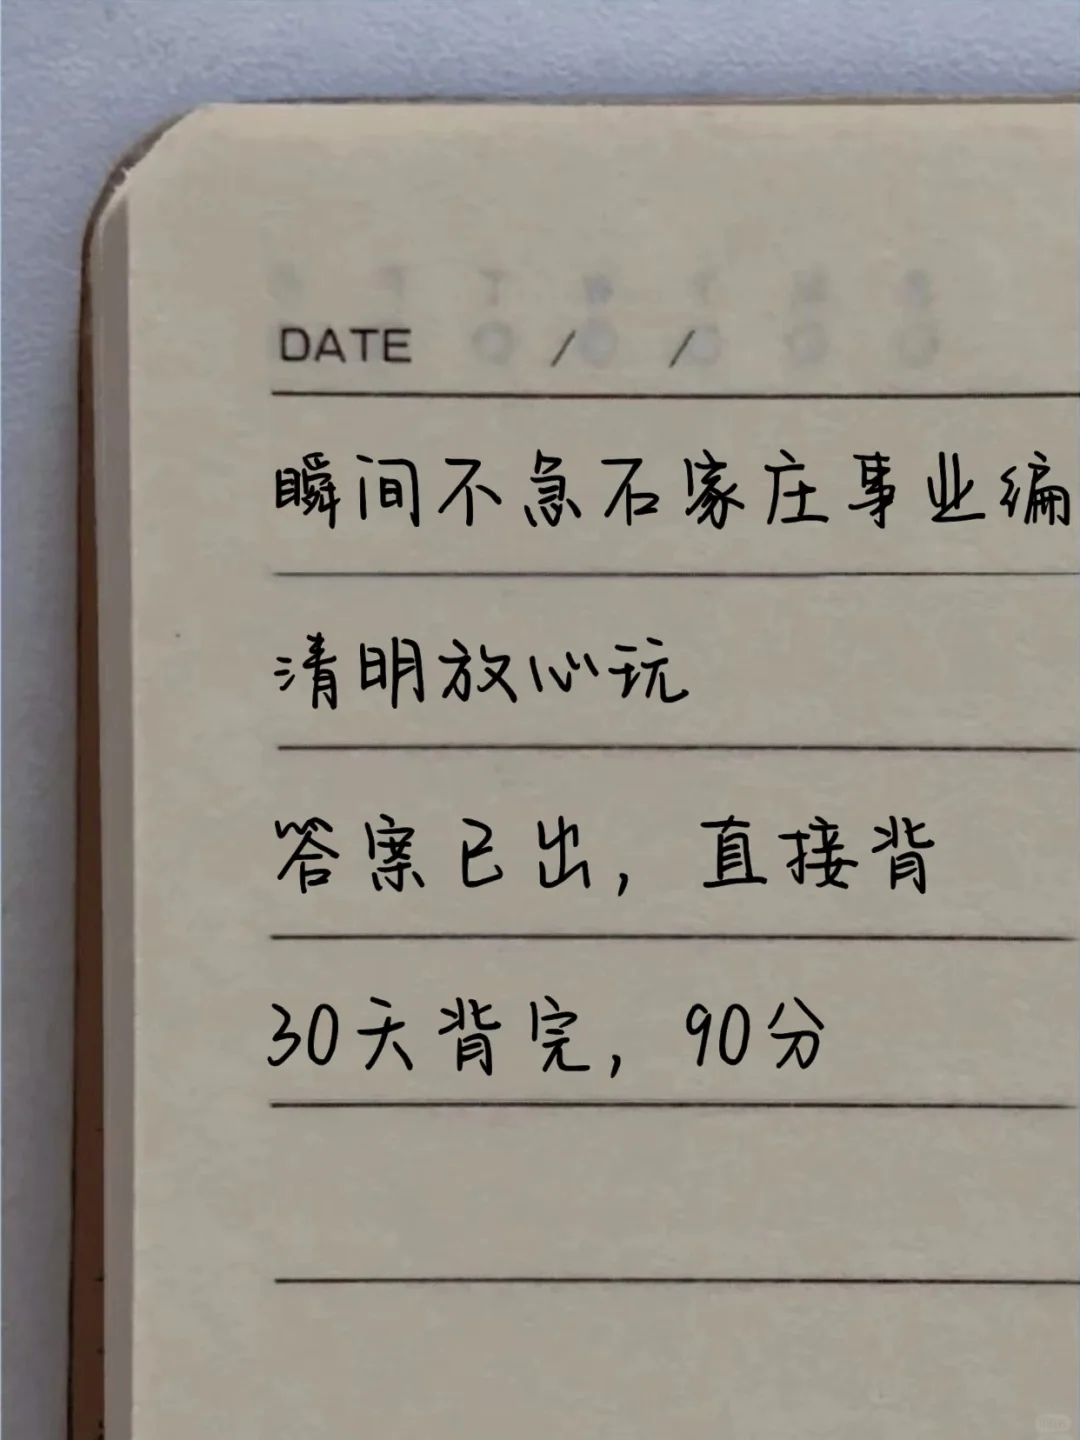 DATE / /
瞬间不急石家庄事业编
清明放心玩
答案已出，直接背
30天背完，90分